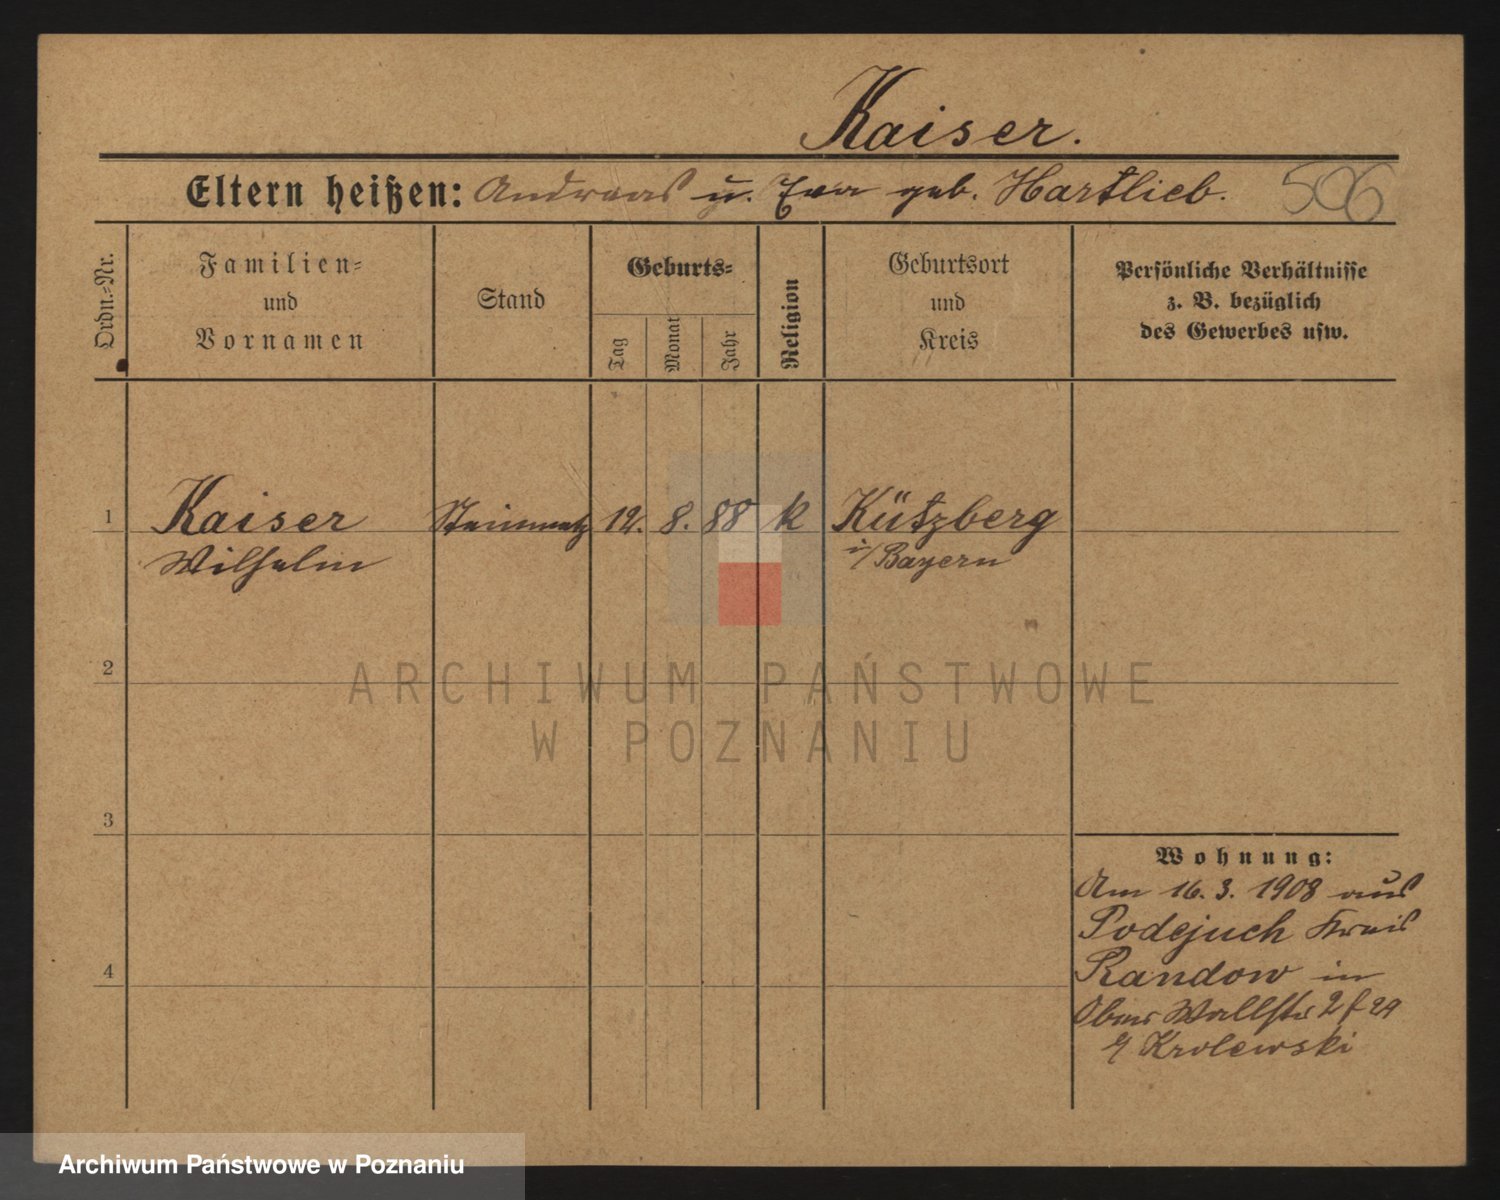 Kaiser.
Eltern heißen: Andreas u. Eva geb. Hartlieb. 506
Ordn.=Nr.
Familien=
und
Vornamen
Stand
Geburts=
Tag
Monat
Jahr
Religion
Geburtsort
und
Kreis
Persönliche Verhältnisse
z. B. bezüglich
des Gewerbes usw.
1 Kaiser Steinmetz 8. 88 k Kützberg
Wilhelm i/Bayern
2
ARCHIWUM PAŃSTWOWE
W POZNANIU
3
Wohnung:
Am 16. 3. 1908 aus
Podejuch Kreis
4
Randow in
Ober Wallstr
Krolewski
Archiwum Państwowe w Poznaniu